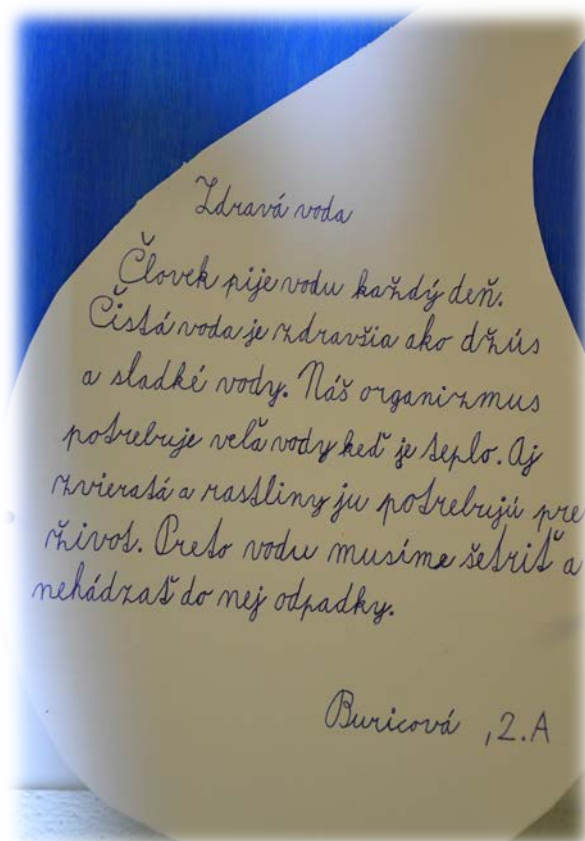 Zdravá voda
Človek pije vodu každý deň.
Čistá voda je zdravšia ako džús
a sladké vody. Náš organizmus
potrebuje veľa vody keď je teplo. Aj
zvieratá a rastliny ju potrebujú pre
život. Preto vodu musíme šetriť a
nehádzať do nej odpadky.
Buricová ,2.A